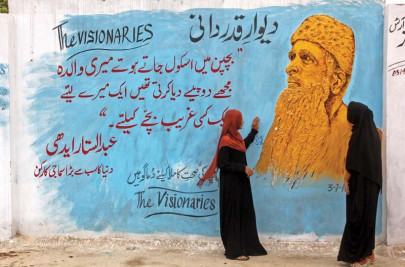 The VISIONARIES
دیوارِ قدردانی
بچپن میں اسکول جاتے ہوئے میری والدہ
مجھے دو پیسے دیا کرتی تھیں ایک میرے لئے
ایک کسی غریب بچے کیلئے"
عبدالستار ایدھی
دنیا کا سب سے بڑا سماجی کارکن
The Visionaries